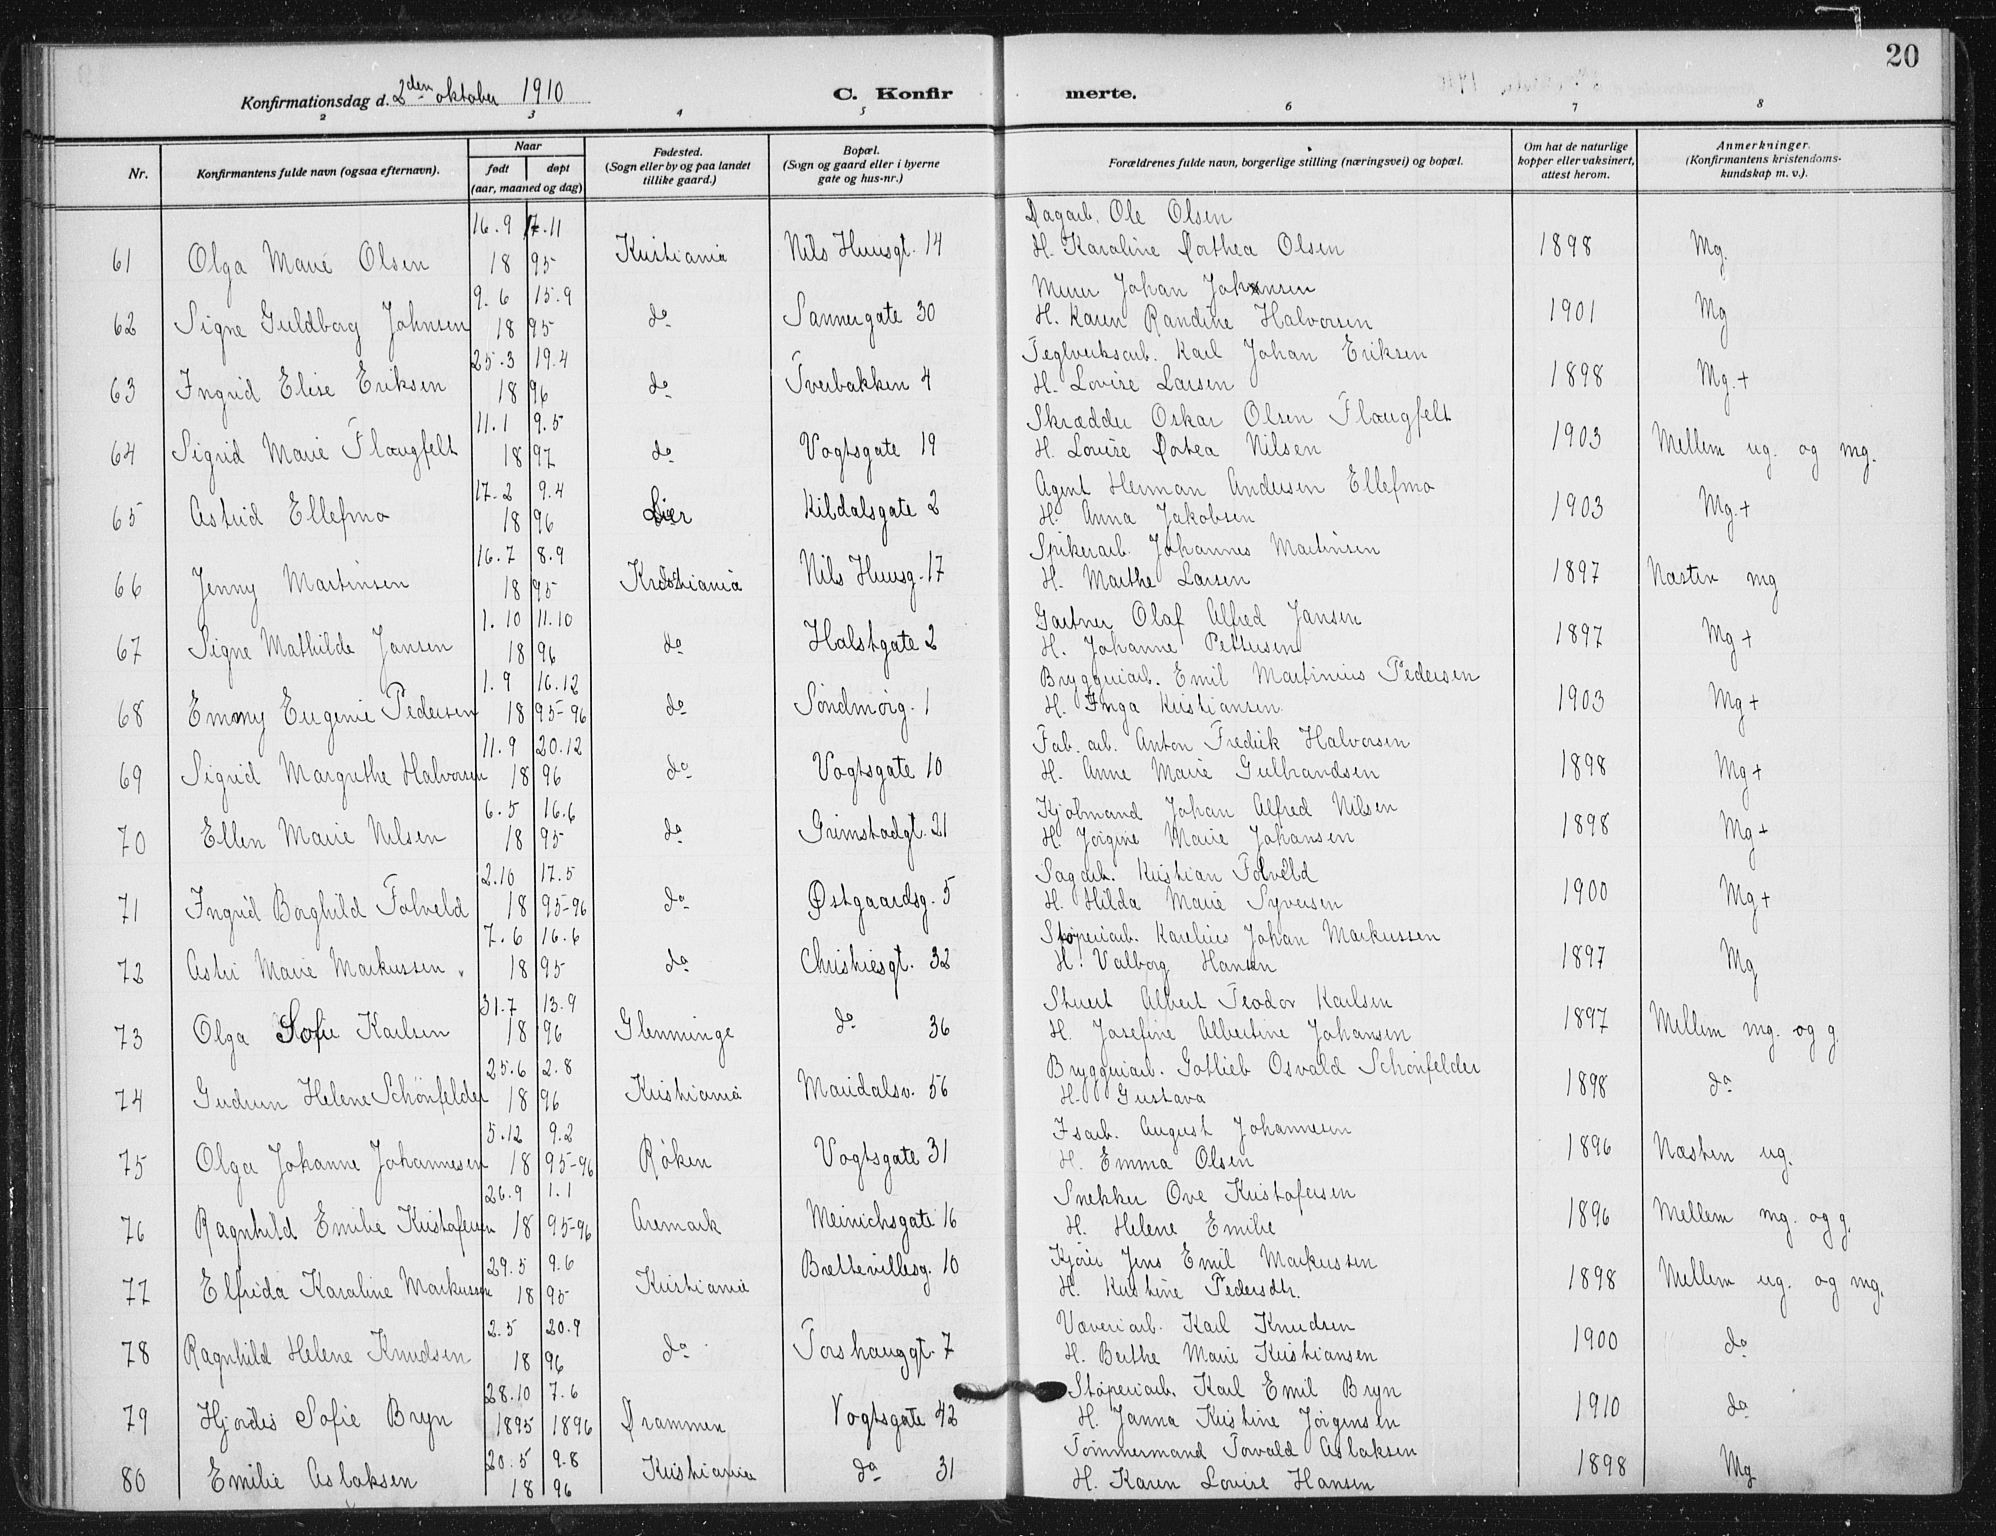 20
Konfirmationsdag d. 2den oktober 1910
C. Konfir merte.
2 3 4 5 6 7 8
Nr.
Konfirmantens fulde navn (ogsaa efternavn).
Naar
født døpt
(aar, maaned og dag)
Fødested.
(Sogn eller by og paa landet
tillike gaard.)
Bopæl.
(Sogn og gaard eller i byerne
gate og hus-nr.)
Forældrenes fulde navn, borgerlige stilling (næringsvei) og bopæl.
Om hat de naturlige
kopper eller vaksinert,
attest herom.
Anmerkninger.
(Konfirmantens kristendoms-
kundskap m. v.).
16.9 17.11 Dagarb. Ole Olsen
61 Olga Marie Olsen 18 95 Kristiania Nils Huusgt. 14 H. Karaline Dorthea Olsen 1898 Mg.
9.6 15.9 Murer Johan Johnsen
62 Signe Guldborg Johnsen 18 95 do Sannergate 30 H. Karen Randine Halvorsen 1901 Mg
25.3 19.4 Teglverksarb. Karl Johan Eriksen
63 Ingrid Elise Eriksen 18 96 do Tverbakken 4 H. Lovise Larsen 1898 Mg.+
11.1 9.5 Skrædder Oskar Olsen Flaugfelt
64 Sigrid Marie Flaugfelt 18 97 do Vogtsgate 19 H. Lovise Dortea Nilsen 1903 Mellem ug. og mg.
17.2 9.4 Agent Herman Andersen Ellefmo
65 Astrid Ellefmo 18 96 Lier Kildalsgate 2 H. Anna Jakobsen 1903 Mg.+
16.7 8.9 Spikerarb. Johannes Martinsen
66 Jenny Martinsen 18 95 Kristiania Nils Huusg. 17 H. Marthe Larsen 1897 Næsten mg
1.10 11.10 Gartner Olaf Alfred Jansen
67 Signe Mathilde Jansen 18 96 do Halstgate 2 H. Johanne Pettersen 1897 Mg+
1.9 16.12 Bryggeriarb. Emil Martinius Pedersen
68 Emmy Eugenie Pedersen 18 95-96 do Söndmörg. 1 H. Inga Kristiansen 1903 Mg+
11.9 20.12 Fab. arb. Anton Fredrik Halvorsen
69 Sigrid Margrethe Halvorsen 18 96 do Vogtsgate 10 H. Anne Marie Gulbrandsen 1898 Mg+
6.5 16.6 Kjöbmand Johan Alfred Nilsen
70 Ellen Marie Nilsen 18 95 do Grimstadgt. 21 H. Jörgine Marie Johansen 1898 Mg+
2.10 17.5 Sagarb. Kristian Folveld
71 Ingrid Borghild Folveld 18 95-96 do Østgaardsg. 5 H. Hilda Marie Syversen 1900 Mg+
7.6 16.6 Stöperiarb. Karelius Johan Markussen
72 Astri Marie Markussen 18 95 do Christiesgt. 32 H. Valborg Hansen 1897 Mg
31.7 13.9 Stuert Albert Teodor Karlsen
73 Olga Sofie Karlsen 18 96 Glemminge do 36 H. Josefine Albertine Johansen 1897 Mellem mg. og g.
25.6 2.8 Bryggeriarb. Gotlieb Osvald Schönfelder
74 Gudrun Helene Schönfelder 18 96 Kristiania Maridalsv. 56 H. Gustava 1898 do
5.12 9.2 Isarb. August Johannesen
75 Olga Johanne Johannesen 18 95-96 Røken Vogtsgate 31 H. Emma Olsen 1896 Næsten ug.
26.9 1.1 Snekker Ove Kristofersen
76 Ragnhild Emilie Kristofersen 18 95-96 Aremark Meinichsgate 16 H. Helene Emilie 1896 Mellem mg. og g.
29.5 9.6 Kjörer Jens Emil Markussen
77 Elfrida Karaline Markussen 18 95 Kristiania Brettevillesg. 10 H. Kristine Pedersdtr. 1898 Mellem ug. og mg.
2.5 20.9 Væveriarb. Karl Knudsen
78 Ragnhild Helene Knudsen 18 96 do Torshauggt. 7 H. Berthe Marie Kristiansen 1900 do
28.10 7.6 Stöperiarb. Karl Emil Bryn
79 Hjördis Sofie Bryn 1895 1896 Drammen Vogtsgate 42 H. Janna Kristine Jörgensen 1910 do
20.5 9.8 Tömmermand Torvald Aslaksen
80 Emilie Aslaksen 18 96 Kristiania do 31 H. Karen Lovise Hansen 1898 Mg